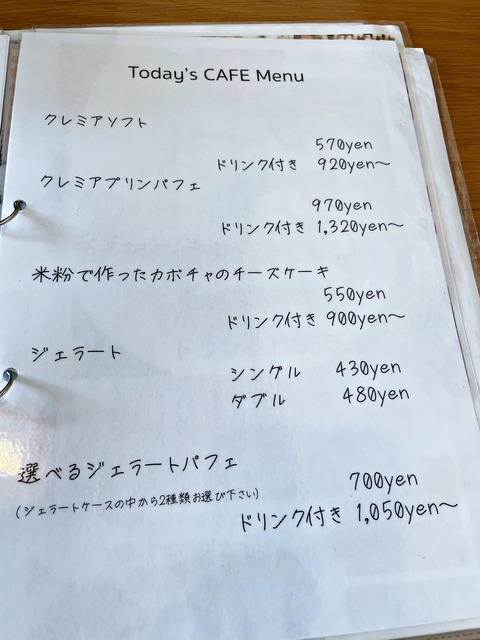 Today's CAFE Menu
クレミアソフト
570yen
ドリンク付き 920yen〜
クレミアプリンパフェ
970yen
ドリンク付き 1,320yen〜
米粉で作ったカボチャのチーズケーキ
550yen
ドリンク付き 900yen〜
ジェラート
シングル 430yen
ダブル 480yen
選べるジェラートパフェ
700yen
(ジェラートケースの中から2種類お選び下さい)
ドリンク付き 1,050yen〜